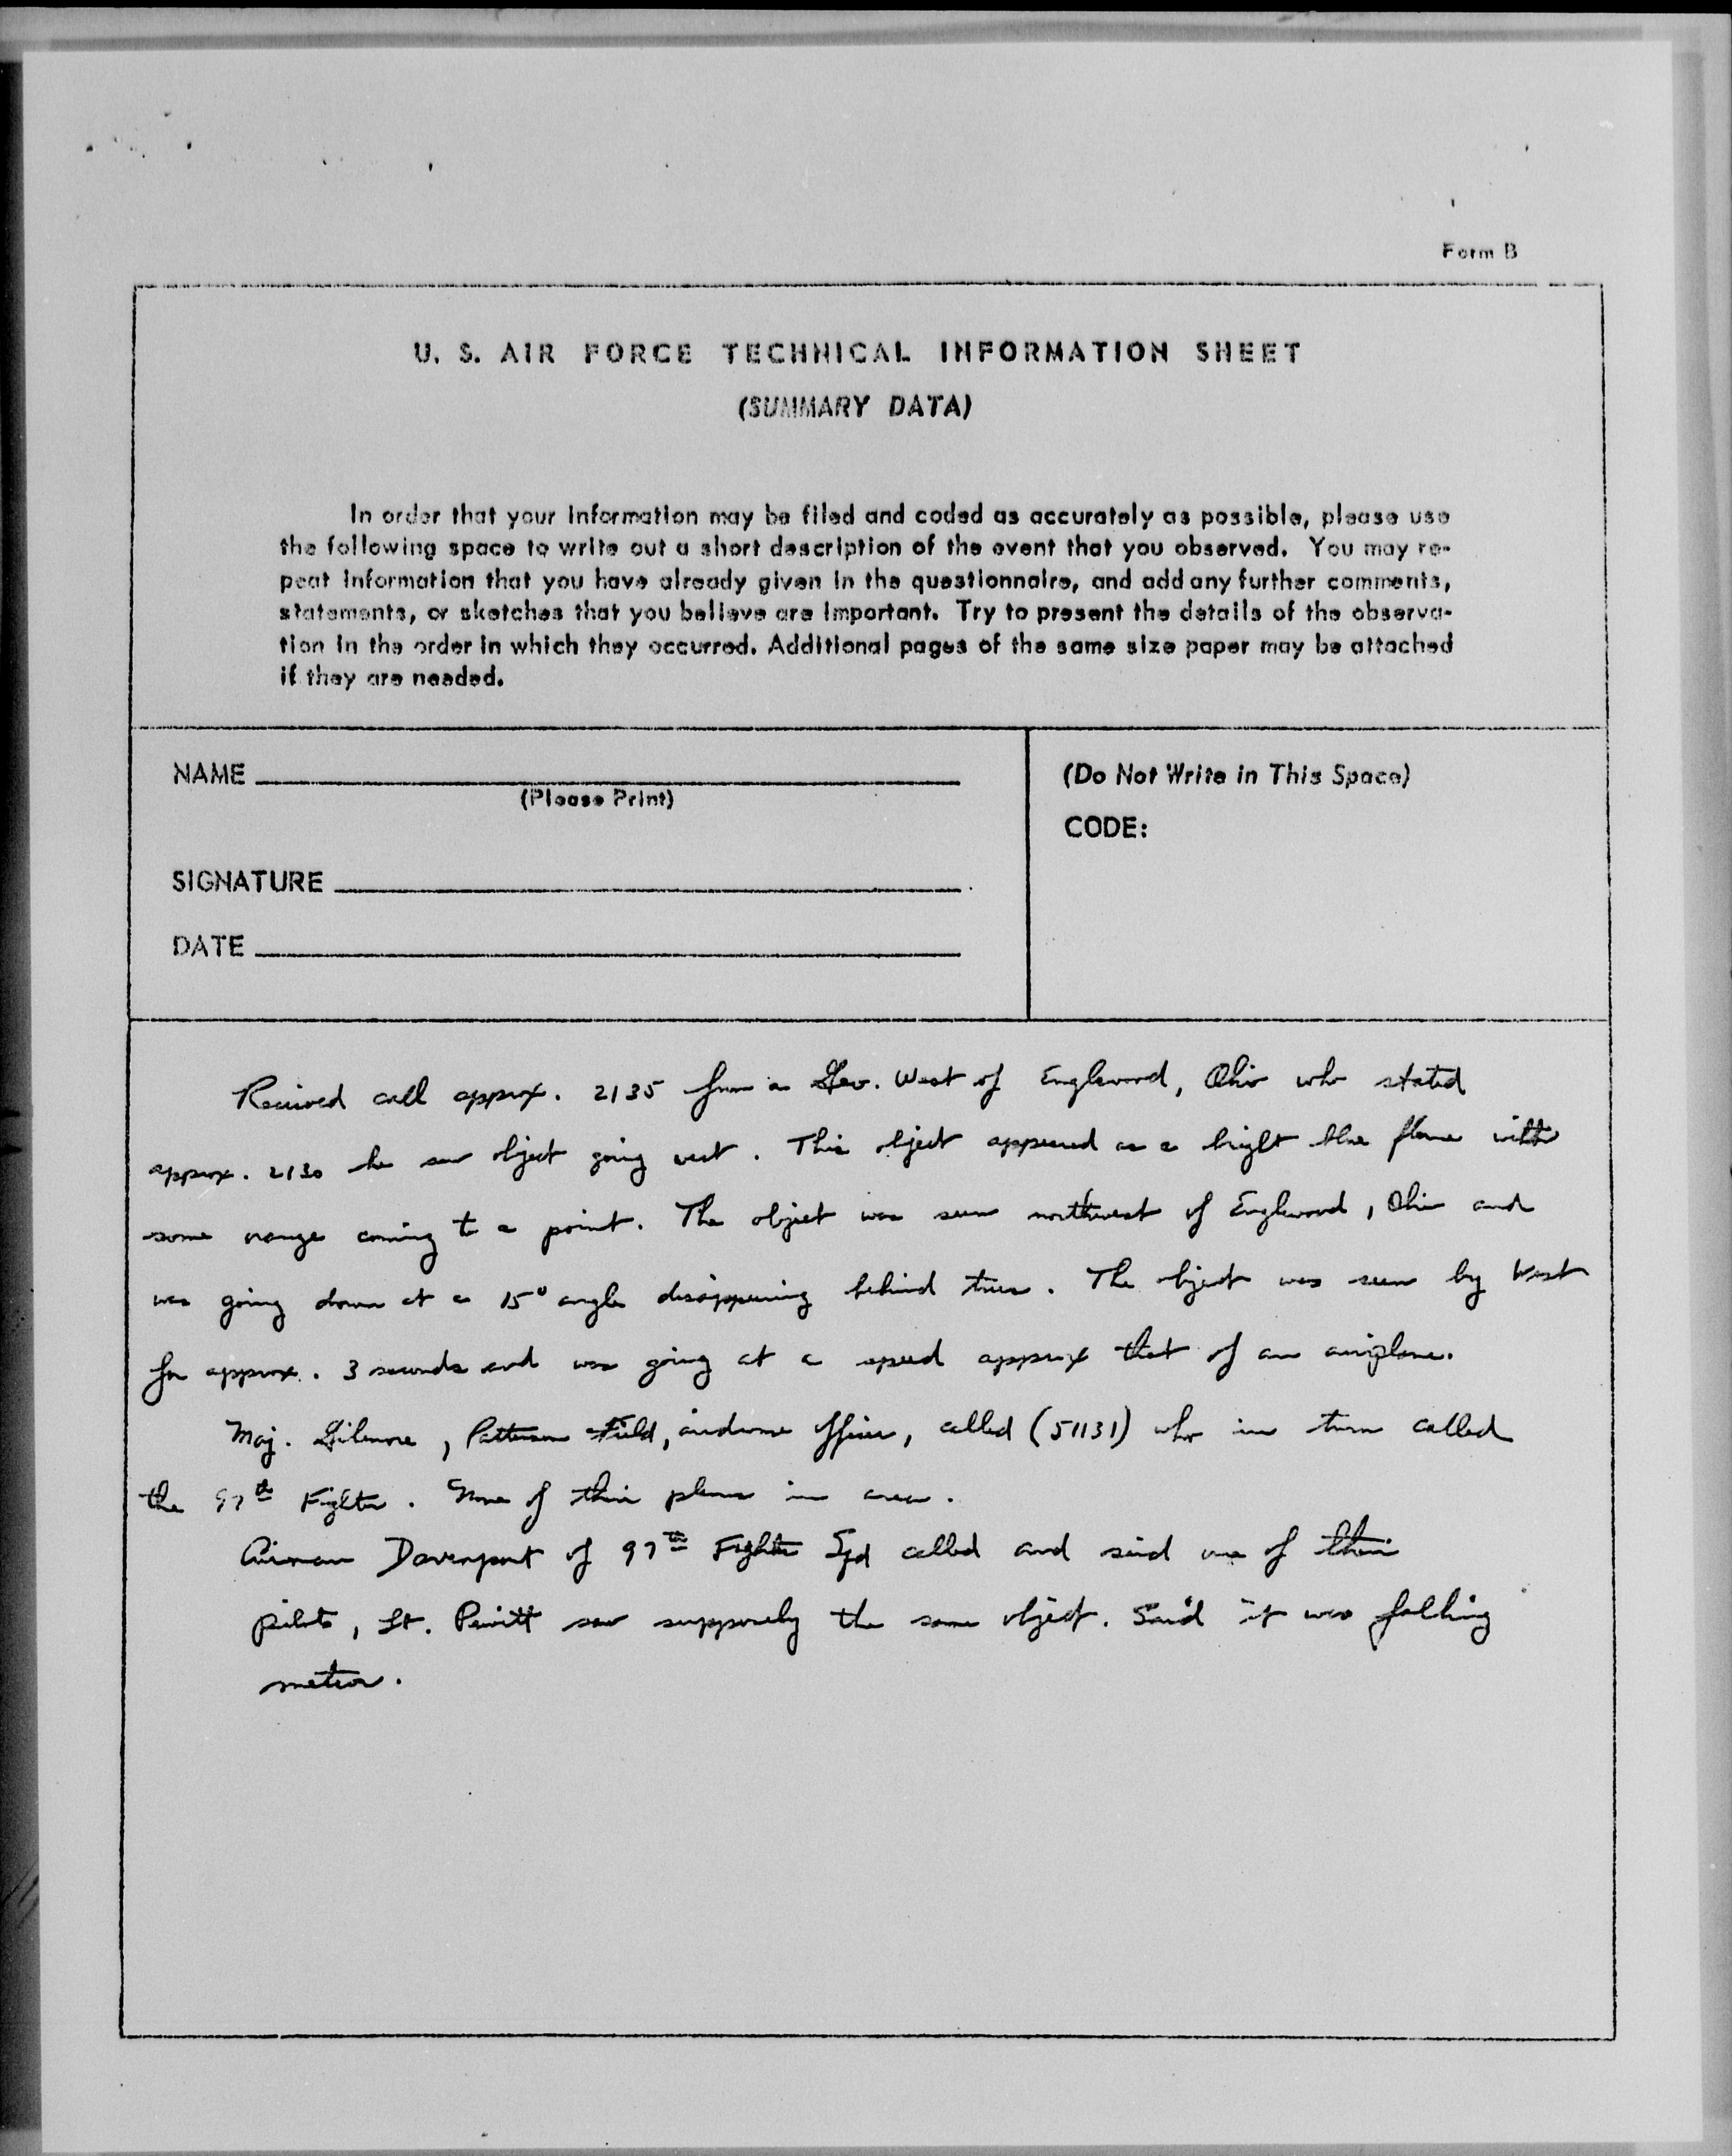 Form B
U. S. AIR FORCE TECHNICAL INFORMATION SHEET
(SUMMARY DATA)
In order that your information may be filed and coded as accurately as possible, please use
the following space to write out a short description of the event that you observed. You may re-
peat information that you have already given in the questionnaire, and add any further comments,
statements, or sketches that you believe are important. Try to present the details of the observa-
tion in the order in which they occurred. Additional pages of the same size paper may be attached
if they are needed.
NAME
(Please Print)
SIGNATURE
DATE
(Do Not Write in This Space)
CODE:
Received call approx. 2135 from a Geo. West of Englewood, Ohio who stated
approx. 2130 he saw object going west. This object appeared as a bright blue flame with
some orange coming to a point. The object was seen northwest of Englewood, Ohio and
was going down at a 15° angle disappearing behind trees. The object was seen by West
for approx. 3 seconds and was going at a speed approx that of an airplane.
Maj. Gilmore, Patterson Field, airdrome officer, called (51131) who in turn called
the 97th Fighter. None of their planes in area.
Airman Davenport of 97th Fighter Sqd called and said one of their
pilots, Lt. saw supposedly the same object. Said it was falling
meteor.